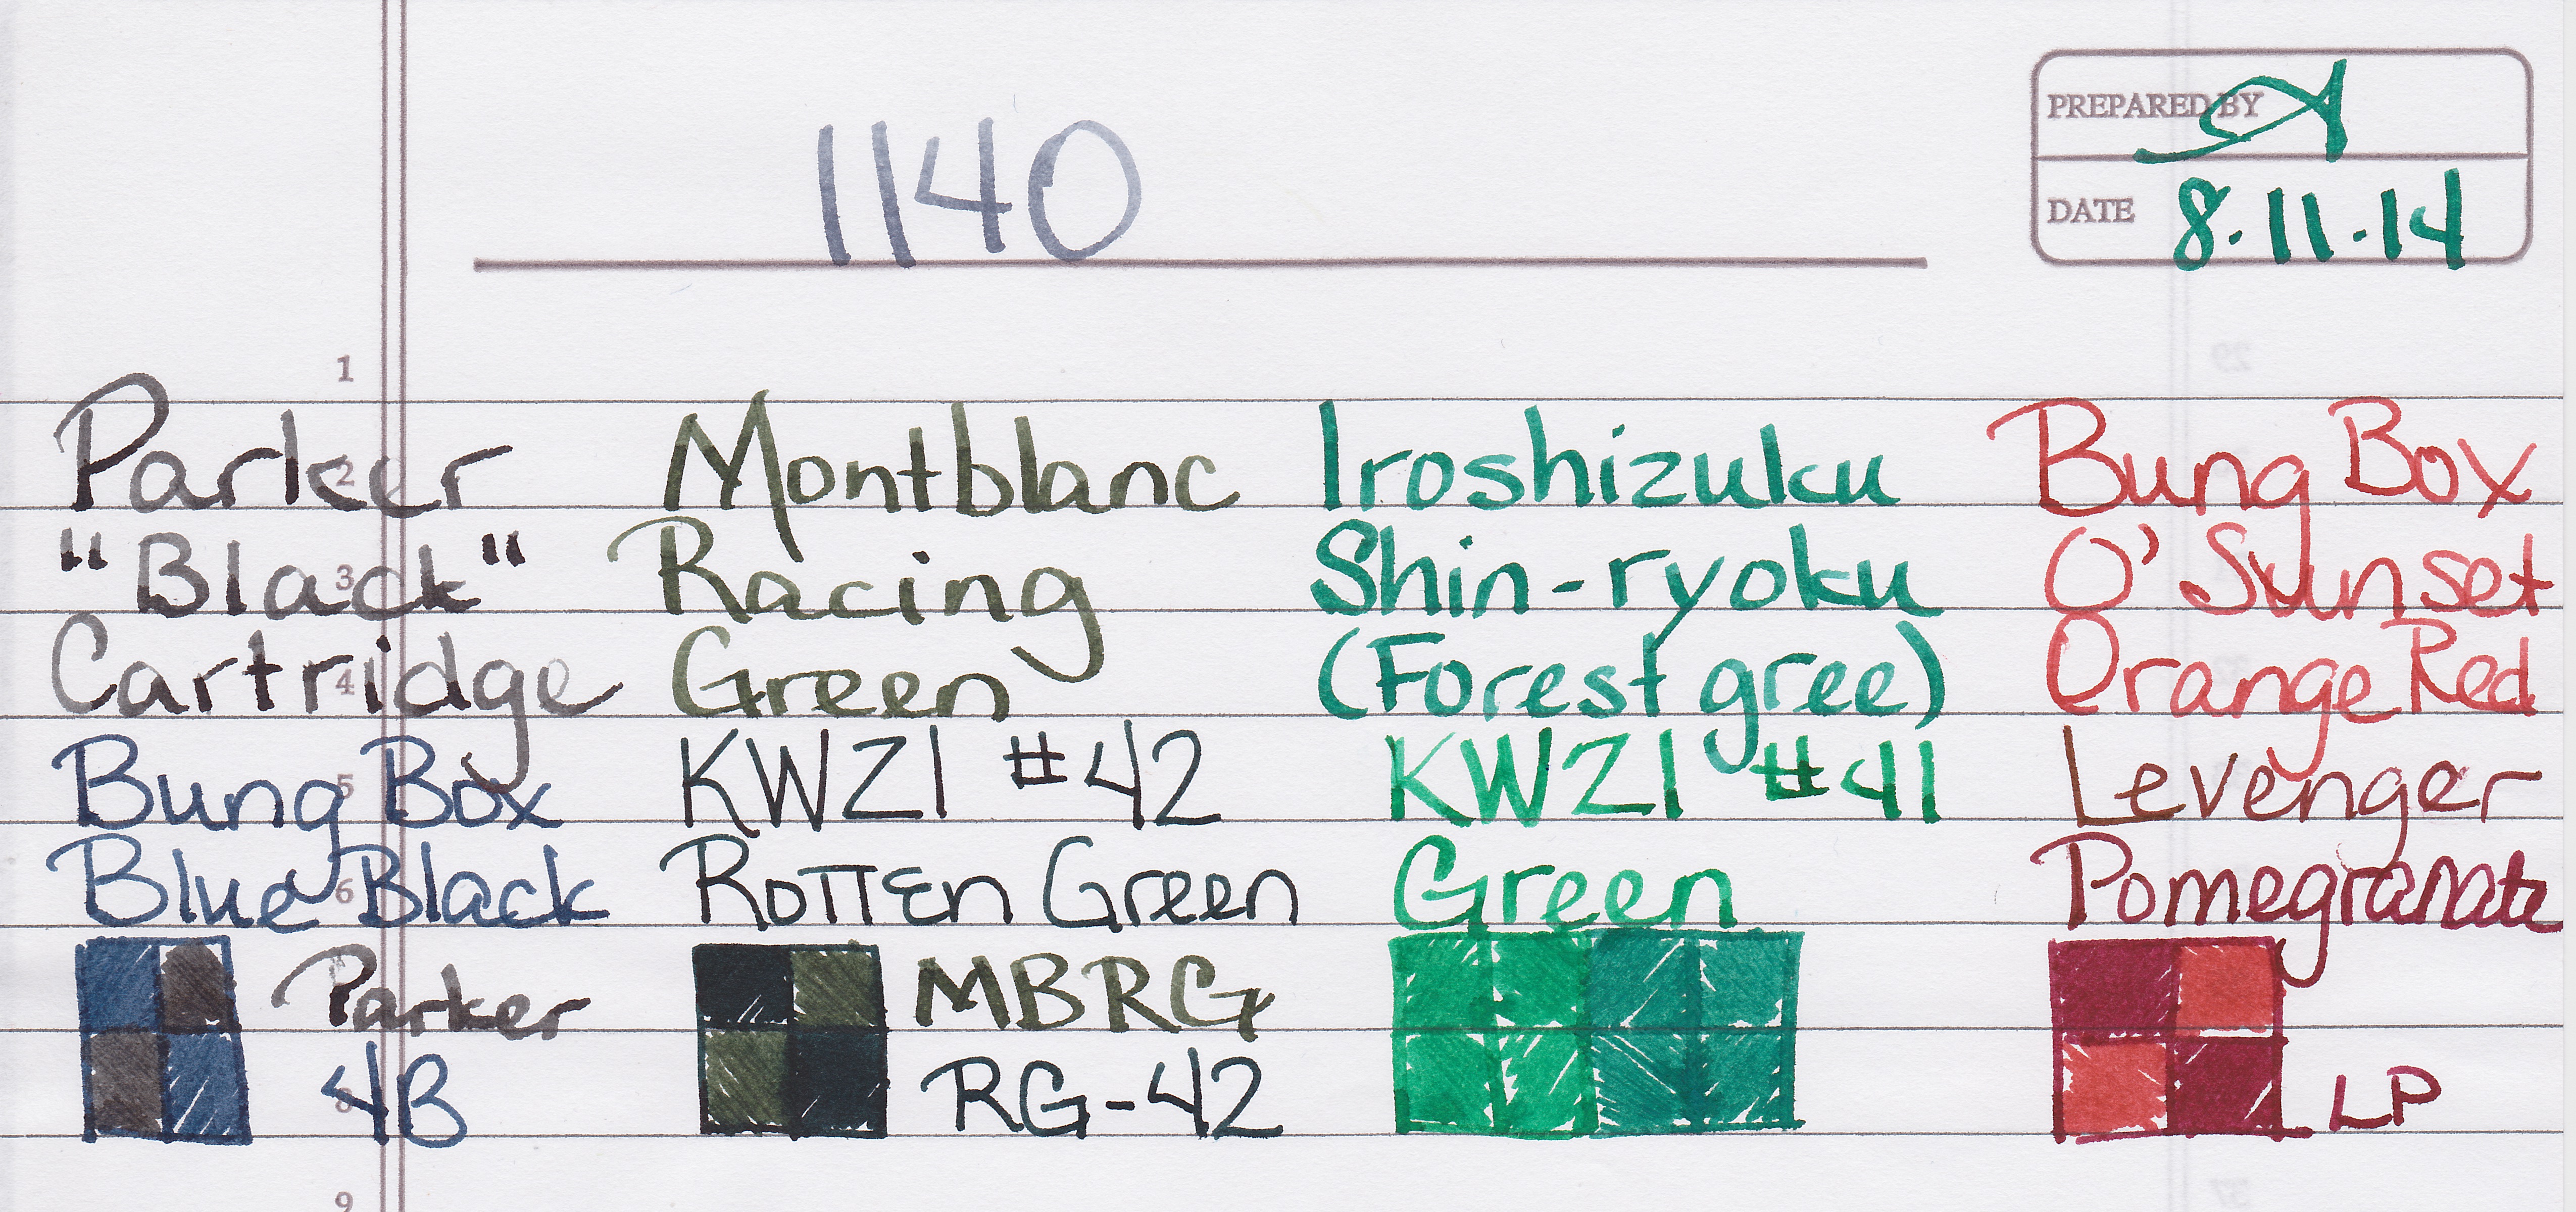 1140
PREPARED BY
DATE 8.11.14
1
Parker
2
"Black"
3
Cartridge
4
Bung Box
5
Blue Black
6
Parker
4B
8
9
Montblanc
Racing
Green
KWZI #42
Rotten Green
MBRG
RG-42
Iroshizuku
Shin-ryoku
(Forest gree)
KWZI #41
Green
Bung Box
O' Sunset
Orange Red
Levenger
Pomegranate
LP